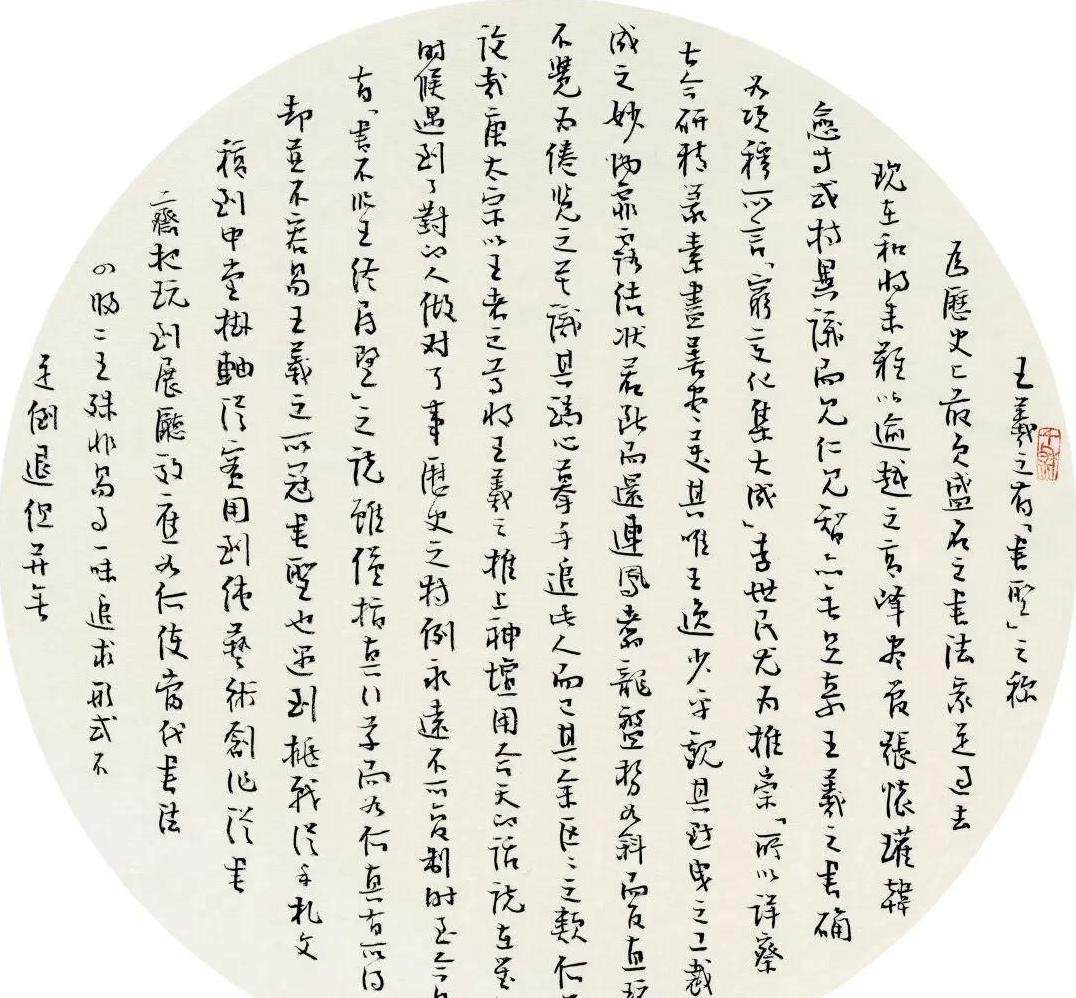 王羲之有「書聖」之稱
為歷史上最負盛名之書法家是過去
現在和將來難以逾越之高峰盡管張懷瓘韓
愈等或持異議而見仁見智亦無足奇王羲之書確
如項穆所言「窮變化集大成」李世民尤為推崇「所以詳察
古今研精篆素盡善盡美其唯王逸少乎觀其點曳之工裁
成之妙煙霏露結狀若斷而還連鳳翥龍蟠勢如斜而反直玩
不覺為倦覽之莫識其端心摹手追此人而已其余區區之類何
論哉唐太宗以王者之尊將王羲之推上神壇用今天的話說在
時候遇到了對的人做對了事歷史之特例永遠不可複製時至今
有「書不從王終屬野」之說雖僅指真行草而為何真有所得
卻並不容易王羲之所冠書聖也還到挑戰從手札文
稿到中堂掛軸從實用到純藝術創作從書
齋把玩到展廳效應如何使當代書法
師二王殊非易事一味追求形式不
是倒退但並無